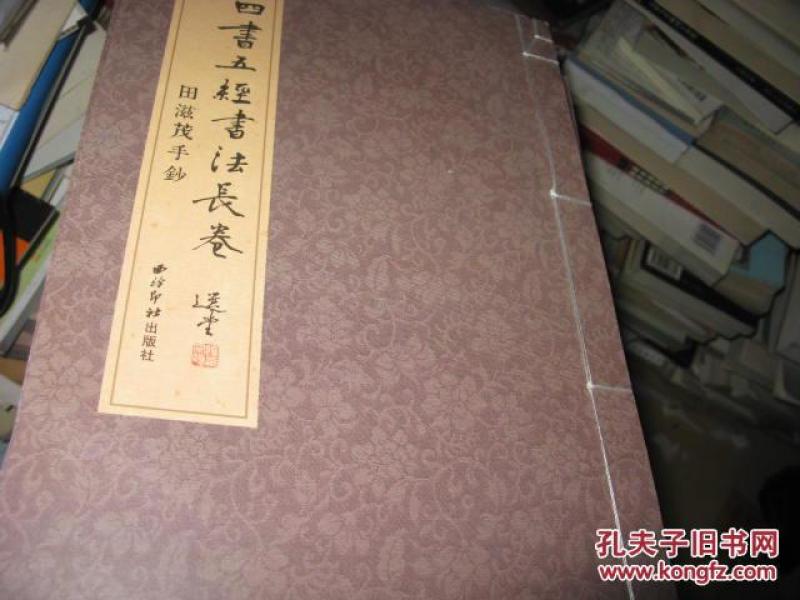 四書五經書法長卷
選堂
田滋茂手鈔
西泠印社出版社
孔夫子旧书网
www.kongfz.com